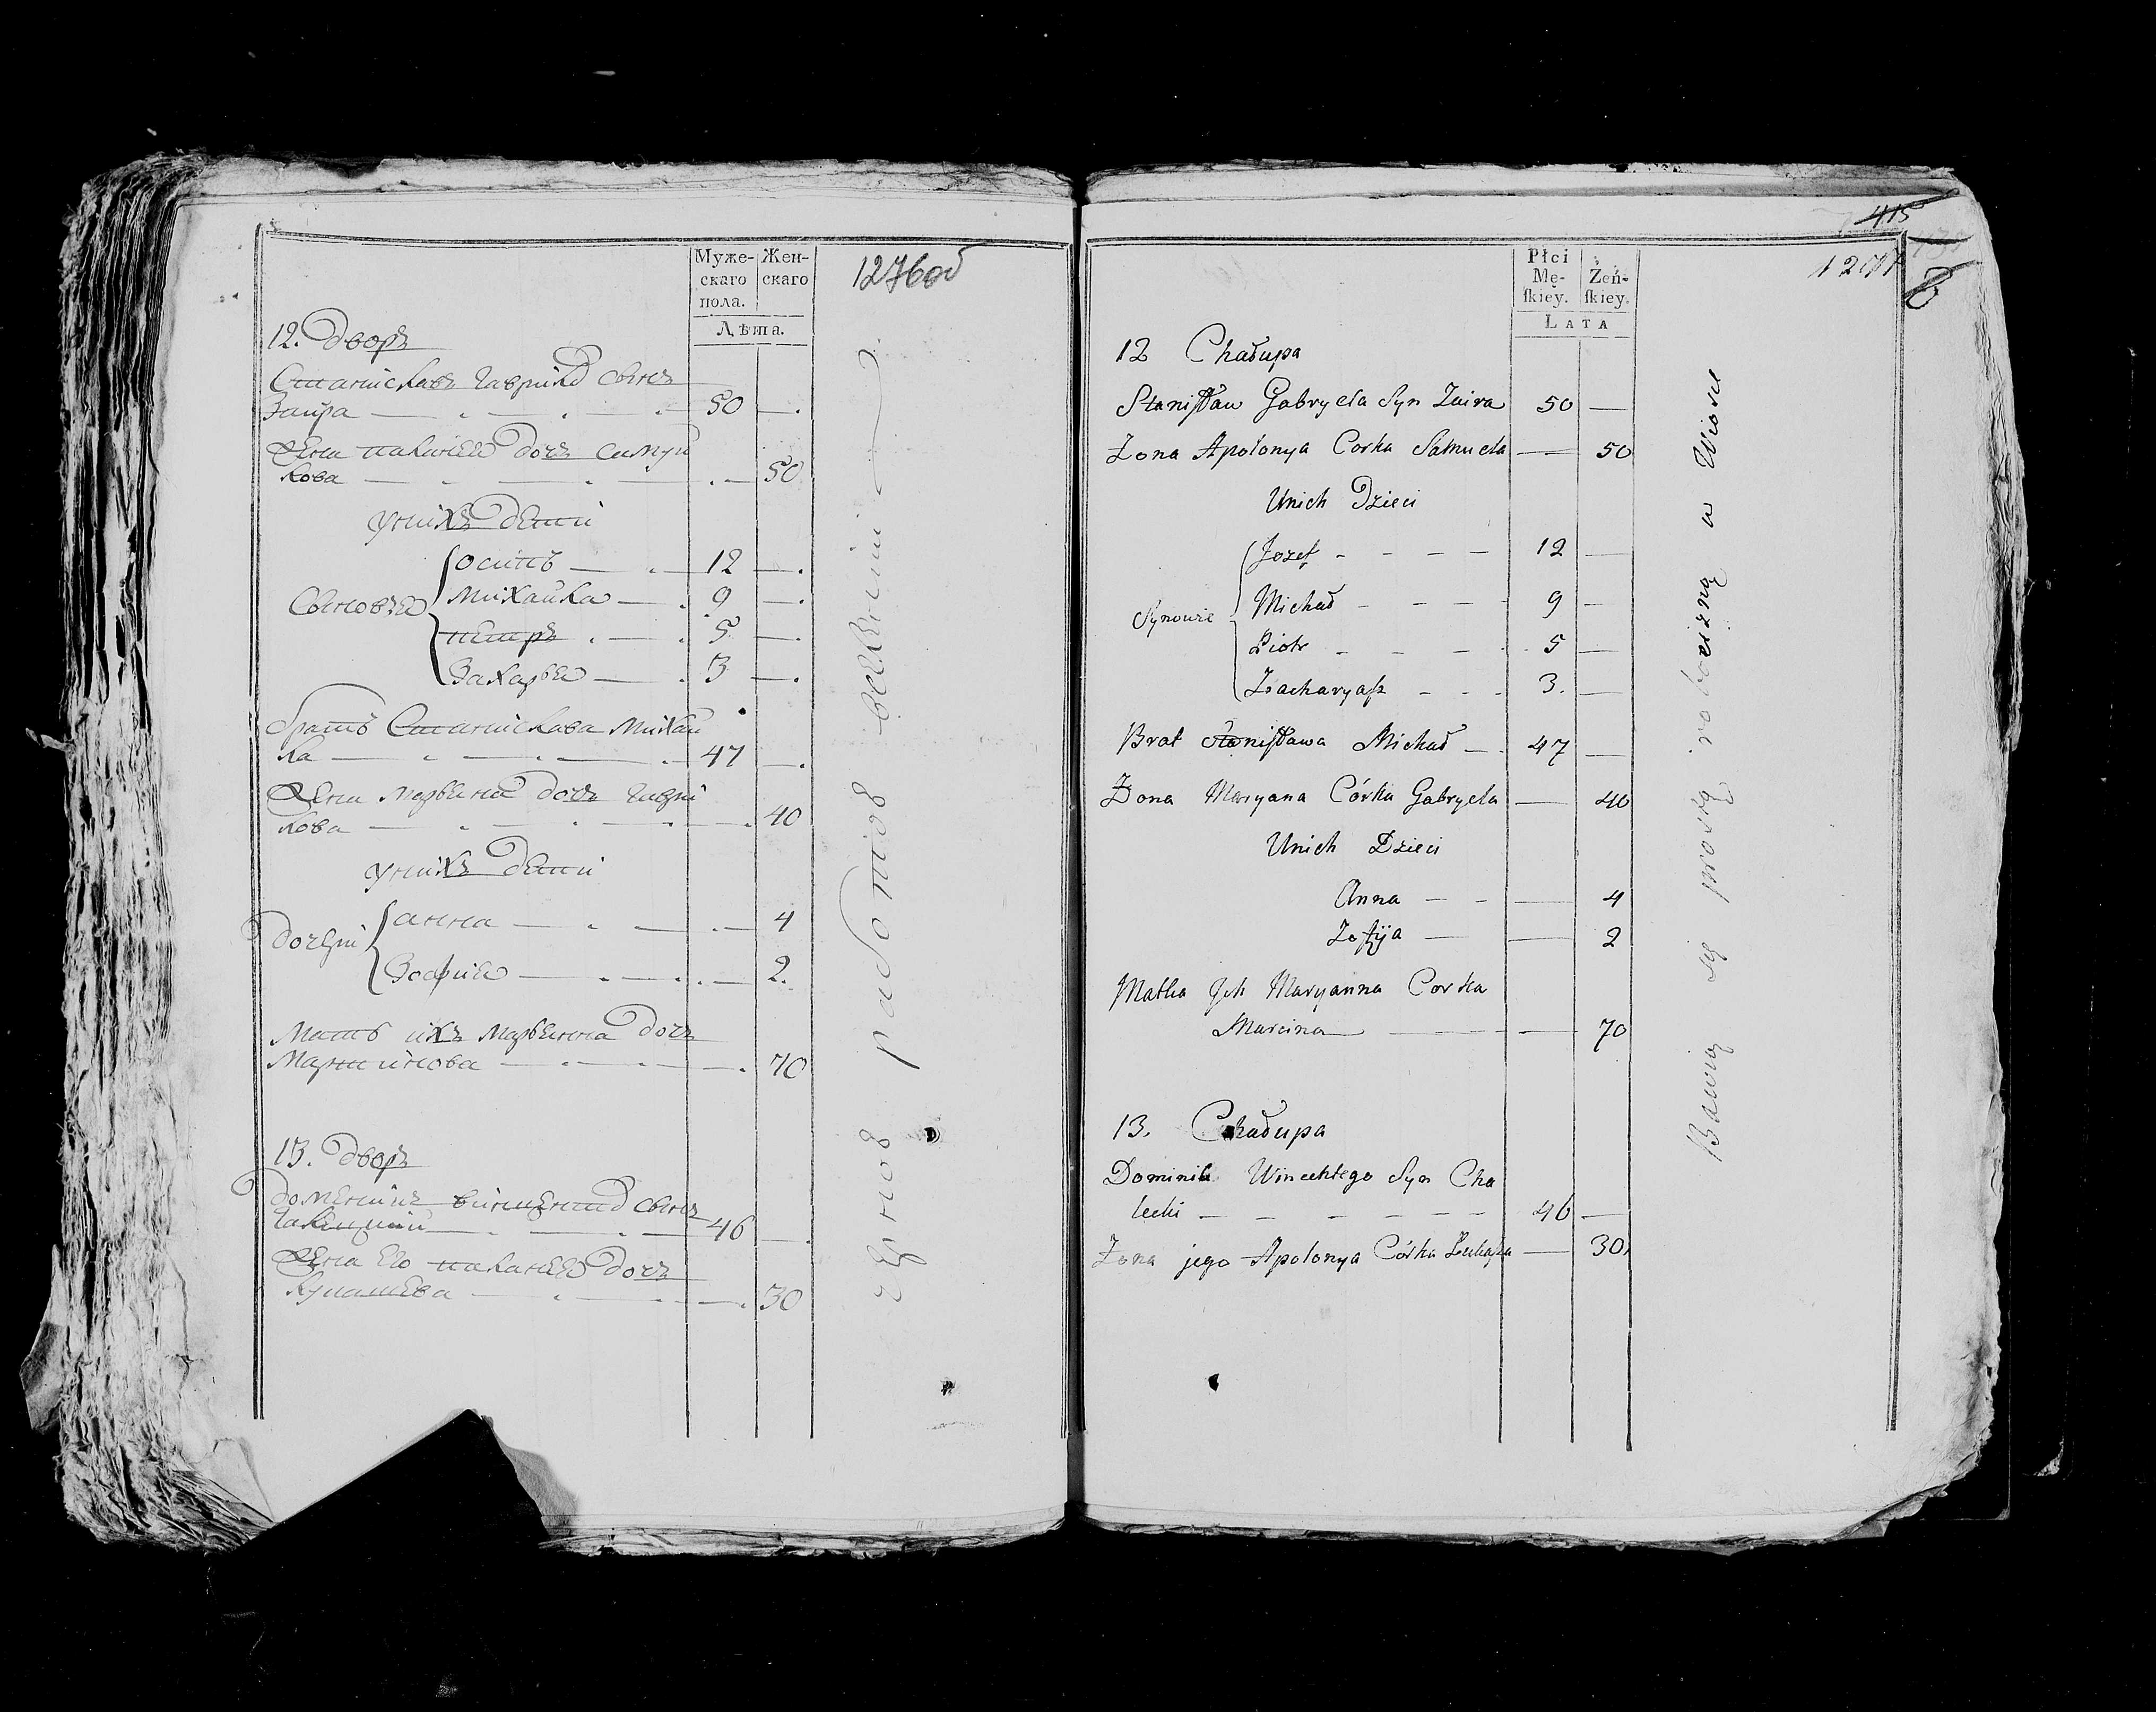 Муже-
скаго
пола.
Жен-
скаго
Лѣта.
1276об
12. Дворъ
Станіславъ Гаврила сынъ
Заира — 50 —
Жена Паланея дочь Самуй
лова — 50
У нихъ дети
Сыновья
Осипъ — 12 —
Михайла — 9 —
Петръ — 5 —
Захарья — 3 —
Братъ Станіслава Михай
ла — 47 —
Жена Марьяна дочь Гаври
лова — 40
У нихъ дети
Дочери
Анна — 4
Зофия — 2.
Мать ихъ Марьянна дочь
Мартинова — 70
13. Дворъ
сынъ
46 —
Жена его Паланея дочь
30
работою
Płci
Mę-
ſkiey.
Żeń-
ſkiey.
LATA
415
12 Chałupa
Stanisław Gabryela Syn Zaira 50 —
Zona Apolonya Corka Samuela — 50
Unich Dzieci
Synowie
Jozef - - - - 12 —
Michał - - - - 9 —
Piotr - - - 5 —
Zacharyaſz - - - 3. —
Brat Stanisława Michał — 47 —
Żona Maryana Córka Gabryela — 40
Unich Dzieci
Anna - - — 4
Zofija — — 2
Matka Jch Maryanna Corka
Marcina — 70
13. Chałupa
Dominik Wincentego Syn Cha
lecki - - - - - - 46 —
Zona jego Apolonya Córka Łukaſza — 30
Bawią się prostą robocizną w Wiosce